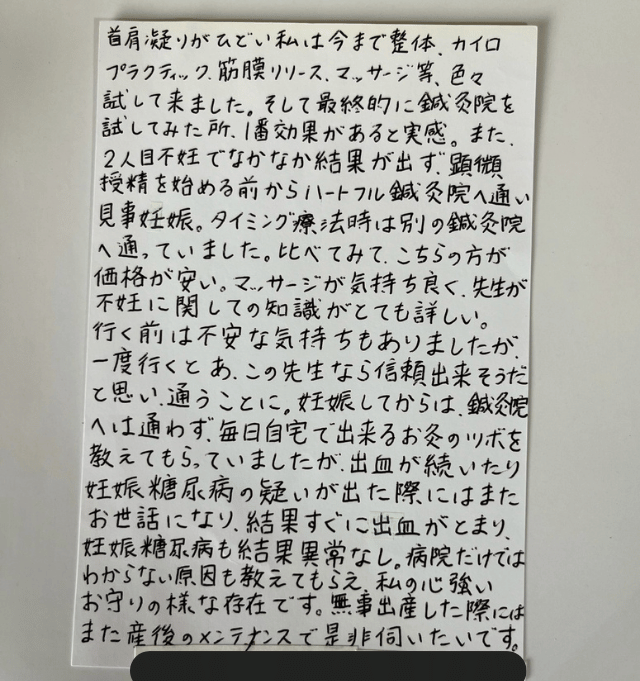 首肩凝りがひどい私は今まで整体、カイロ
プラクティック、筋膜リリース、マッサージ等、色々
試して来ました。そして最終的に鍼灸院を
試してみた所、1番効果があると実感。また、
2人目不妊でなかなか結果が出ず、顕微
授精を始める前からハートフル鍼灸院へ通い
見事妊娠。タイミング療法時は別の鍼灸院
へ通っていました。比べてみて、こちらの方が
価格が安い。マッサージが気持ち良く、先生が
不妊に関しての知識がとても詳しい。
行く前は不安な気持ちもありましたが、
一度行くと あ、この先生なら信頼出来そうだ
と思い、通うことに。妊娠してからは、鍼灸院
へは通わず、毎日自宅で出来るお灸のツボを
教えてもらっていましたが、出血が続いたり
妊娠糖尿病の疑いが出た際にはまた
お世話になり、結果すぐに出血がとまり、
妊娠糖尿病も結果異常なし。病院だけでは
わからない原因も教えてもらえ、私の心強い
お守りの様な存在です。無事出産した際には
また産後のメンテナンスで是非伺いたいです。